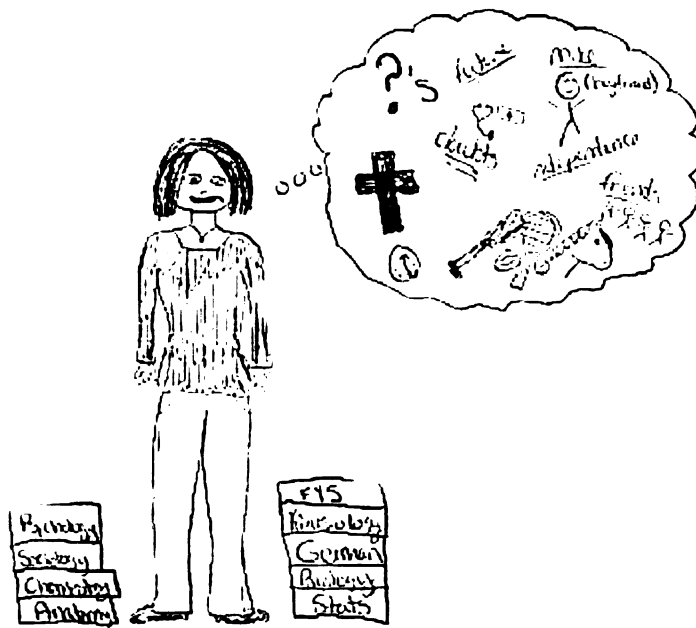 ?'s
future
Mike
(boyfriend)
doubts
independence
friends
Psychology
Sociology
Chemistry
Anatomy
FYS
Kinesiology
German
Biology
Stats